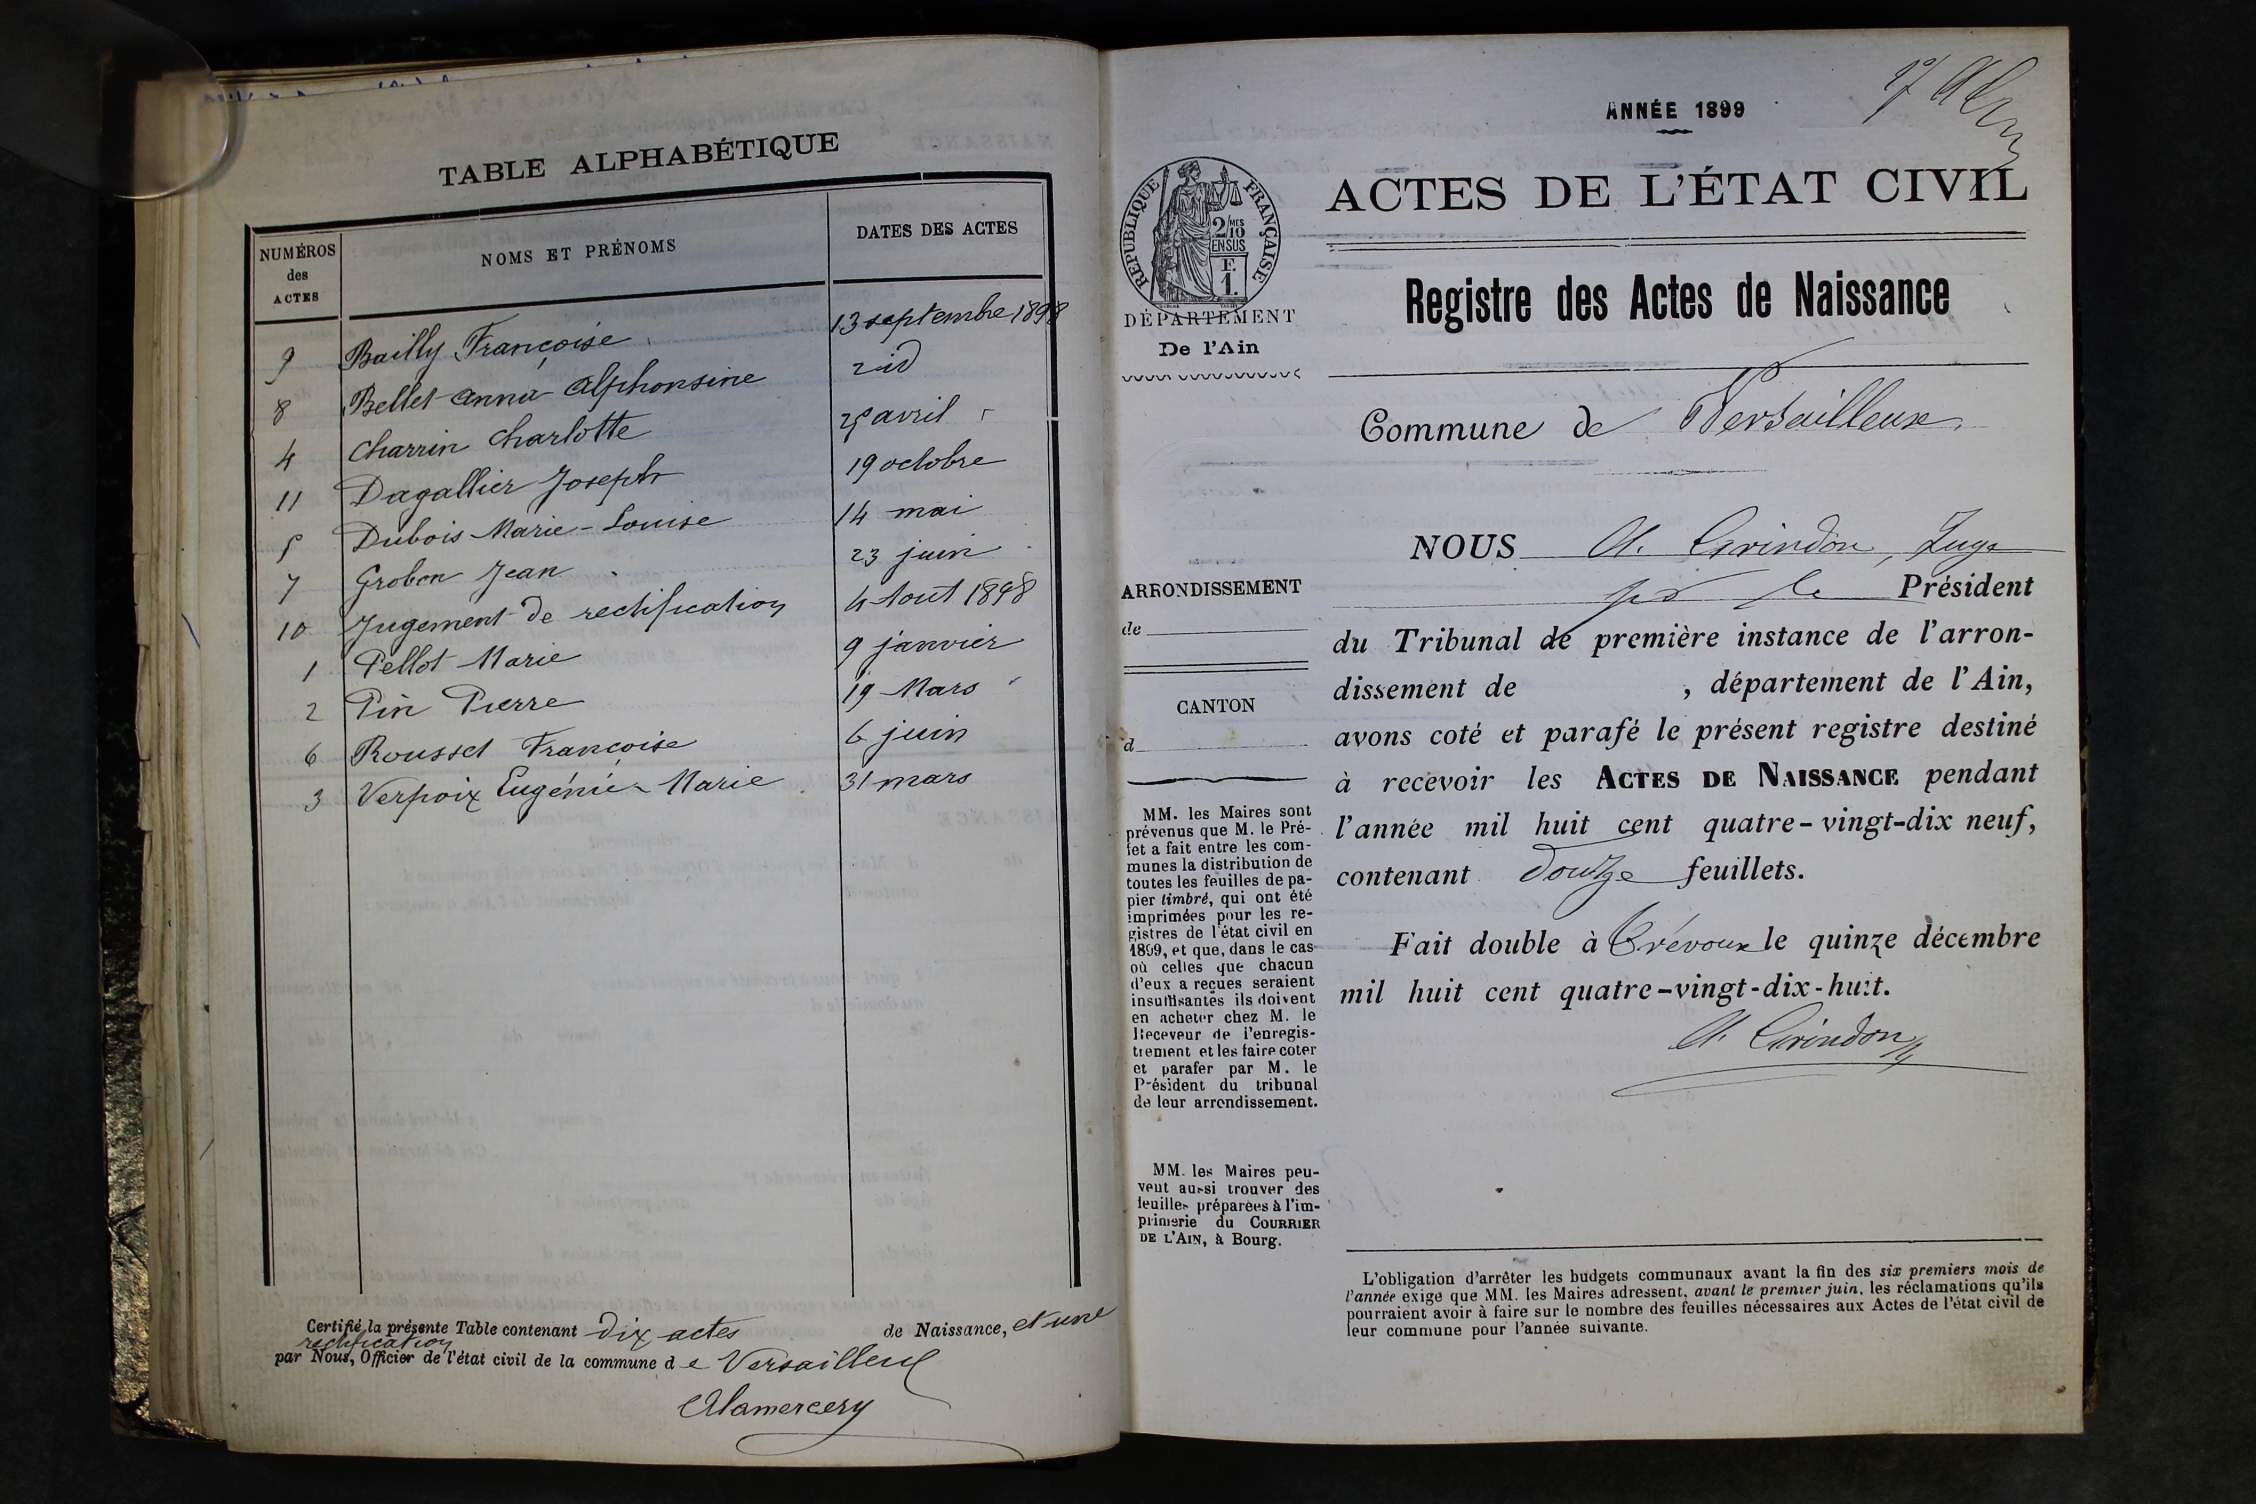 TABLE ALPHABÉTIQUE
NUMÉROS des ACTES
NOMS ET PRÉNOMS
DATES DES ACTES
9 Bailly Françoise 13 septembre 1898
8 Bellet Anna Alphonsine 2 id
4 Charrin Charlotte 25 avril
11 Dagallier Joseph 19 octobre
5 Dubois Marie-Louise 14 mai
7 Grobon Jean 23 juin
10 Jugement de rectification 4 Aout 1898
1 Pellot Marie 9 janvier
2 Pin Pierre 19 Mars
6 Rousset Françoise 6 juin
3 Verpoix Eugénie Marie 31 mars
Certifié la présente Table contenant dix actes de Naissance, et une
rectification
par Nous, Officier de l'état civil de la commune d e Versailleux
Alamercery
ANNÉE 1899
ACTES DE L'ÉTAT CIVIL
RÉPUBLIQUE FRANÇAISE
2/10 MES
EN SUS
F.
1.
DÉPARTEMENT
De l'Ain
Registre des Actes de Naissance
Commune de Versailleux
ARRONDISSEMENT
de
CANTON
d
MM. les Maires sont
prévenus que M. le Pré-
fet a fait entre les com-
munes la distribution de
toutes les feuilles de pa-
pier timbré, qui ont été
imprimées pour les re-
gistres de l'état civil en
1899, et que, dans le cas
où celles que chacun
d'eux a reçues seraient
insuffisantes ils doivent
en acheter chez M. le
Receveur de l'enregis-
trement et les faire coter
et parafer par M. le
Président du tribunal
de leur arrondissement.
MM. les Maires peu-
vent aussi trouver des
feuilles préparées à l'im-
primerie du COURRIER
DE L'AIN, à Bourg.
NOUS A. Grindon, Juge
pr le Président
du Tribunal de première instance de l'arron-
dissement de , département de l'Ain,
avons coté et parafé le présent registre destiné
à recevoir les ACTES DE NAISSANCE pendant
l'année mil huit cent quatre-vingt-dix neuf,
contenant Douze feuillets.
Fait double à Trévoux le quinze décembre
mil huit cent quatre-vingt-dix-huit.
A. Grindon
L'obligation d'arrêter les budgets communaux avant la fin des six premiers mois de
l'année exige que MM. les Maires adressent, avant le premier juin, les réclamations qu'ils
pourraient avoir à faire sur le nombre des feuilles nécessaires aux Actes de l'état civil de
leur commune pour l'année suivante.